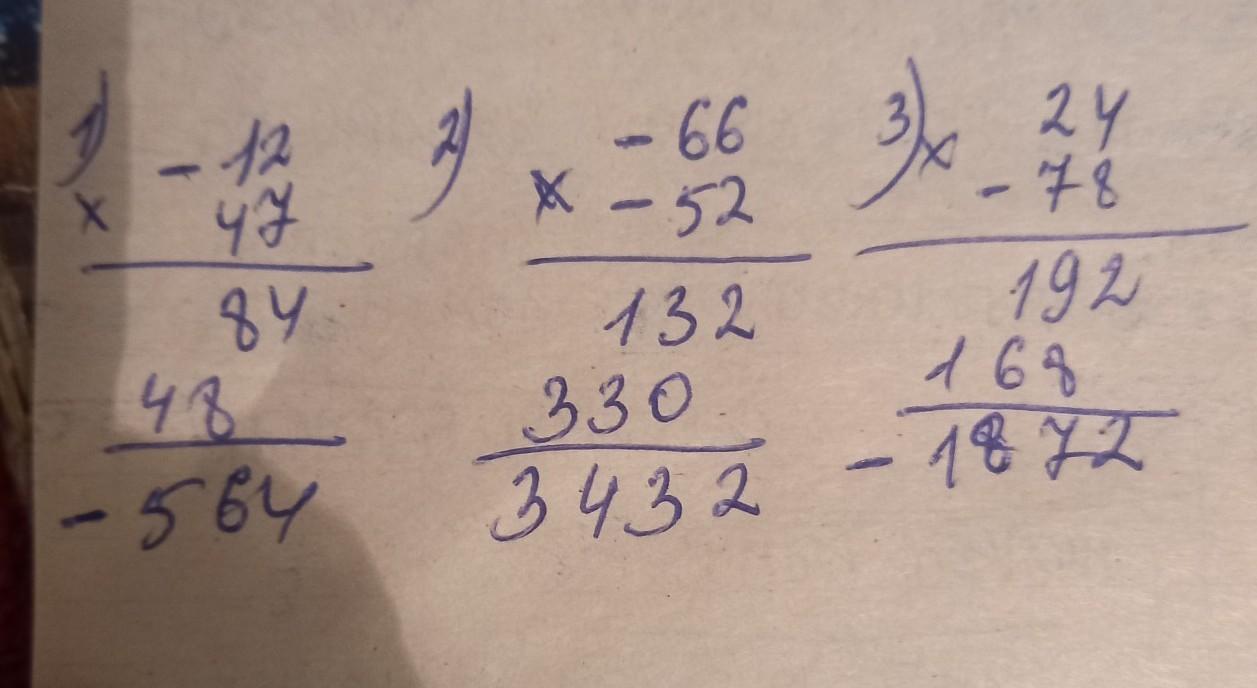 1) - 12
× 47
84
48
- 564
2) - 66
× - 52
132
330
3432
3) × 24
- 78
192
168
- 1872